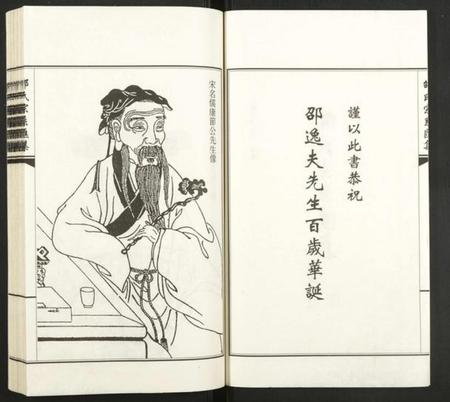 謹以此書恭祝
邵逸夫先生百歲華誕
宋名儒康節公先生像